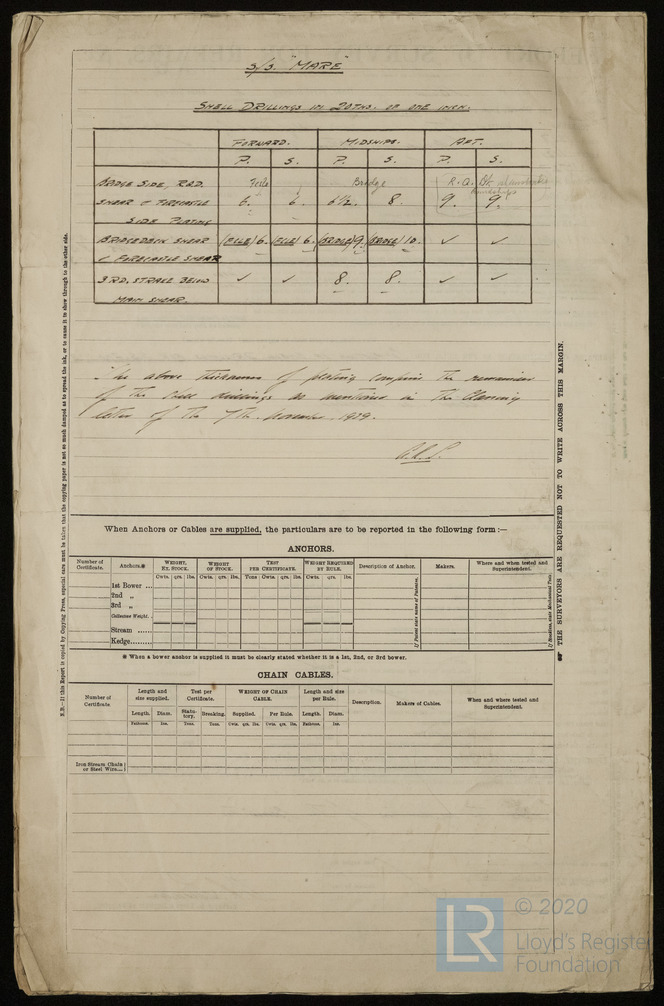 S/S. "MARE"
SHELL DRILLINGS IN 20THS. OF ONE INCH.
FORWARD. MIDSHIPS. AFT.
P. S. P. S. P. S.
BRIDGE SIDE, R.Q.D. Fcsle Bridge R.Q. Dk
SHEAR & FORECASTLE 6. 6. 6½. 8. 9. 9.
SIDE PLATING
BRIDGEDECK SHEAR (FCLE) 6. (FCLE) 6. (BRIDGE) 9. (BRIDGE) 10. ✓ ✓
& FORECASTLE SHEAR
3RD. STRAKE BELOW ✓ ✓ 8. 8. ✓ ✓
MAIN SHEAR.
The above thicknesses of plating comprise the remainder
of the drillings as mentioned in the
letter of the 7th November 1929.
When Anchors or Cables are supplied, the particulars are to be reported in the following form:—
ANCHORS.
Number of Certificate. Anchors.* WEIGHT, EX. STOCK. WEIGHT OF STOCK. TEST PER CERTIFICATE. WEIGHT REQUIRED BY RULE. Description of Anchor. Makers. Where and when tested and Superintendent.
Cwts. qrs. lbs. Cwts. qrs. lbs. Tons Cwts. qrs. lbs. Cwts. qrs. lbs.
1st Bower ...
2nd „
3rd „
Collective Weight.
Stream ......
Kedge.........
If Patent state name of Patentee.
* When a bower anchor is supplied it must be clearly stated whether it is a 1st, 2nd, or 3rd bower.
CHAIN CABLES.
Number of Certificate. Length and size supplied. Test per Certificate. WEIGHT OF CHAIN CABLE. Length and size per Rule. Description. Makers of Cables. When and where tested and Superintendent.
Length. Diam. Statutory. Breaking. Supplied. Per Rule. Length. Diam.
Fathoms. Ins. Tons. Tons. Cwts. qrs. lbs. Cwts. qrs. lbs. Fathoms. Ins.
Iron Stream Chain
or Steel Wire...
N.B.—If this Report is copied by Copying Press, especial care must be taken that the copying paper is not so much damped as to spread the ink, or to cause it to show through to the other side.
THE SURVEYORS ARE REQUESTED NOT TO WRITE ACROSS THIS MARGIN.
LR
© 2020
Lloyd's Register
Foundation